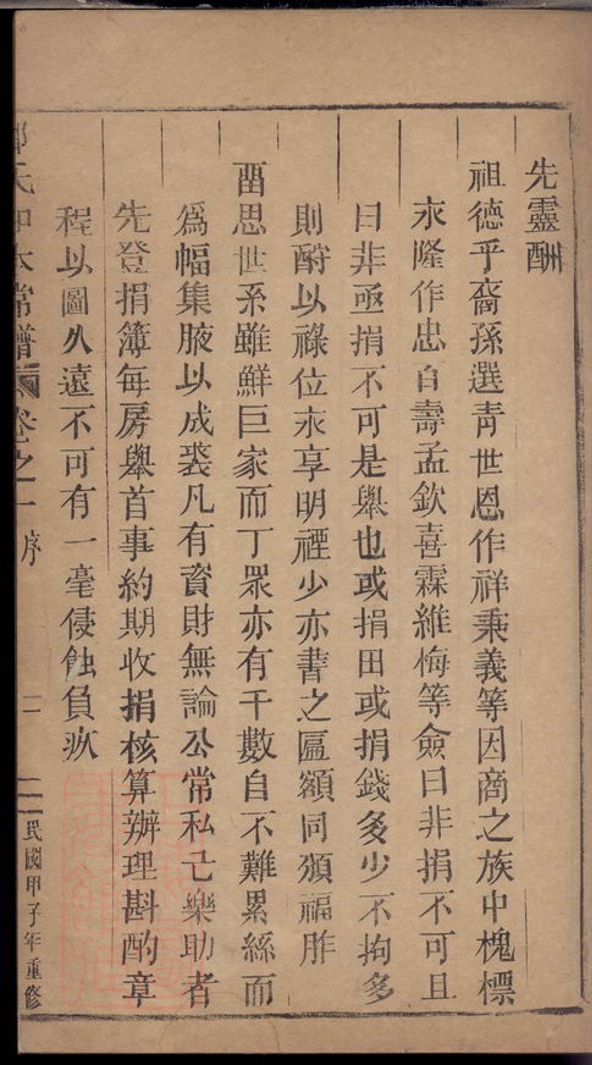 先靈酬
祖德乎裔孫選青世恩作祥秉義等因商之族中槐標
永隆作忠自壽孟欽喜霖維梅等僉曰非捐不可且
曰非亟捐不可是舉也或捐田或捐錢多少不拘多
則酧以祿位永享明禋少亦書之匾額同頒福胙
畱思世系雖鮮巨家而丁眾亦有千數自不難累絲而
爲幅集腋以成裘凡有資財無論公常私己樂助者
先登捐簿每房舉首事約期收捐核算辦理斟酌章
程以圖久遠不可有一毫侵蝕負疚
氏 常譜 卷之一 序 二 民國甲子年重修